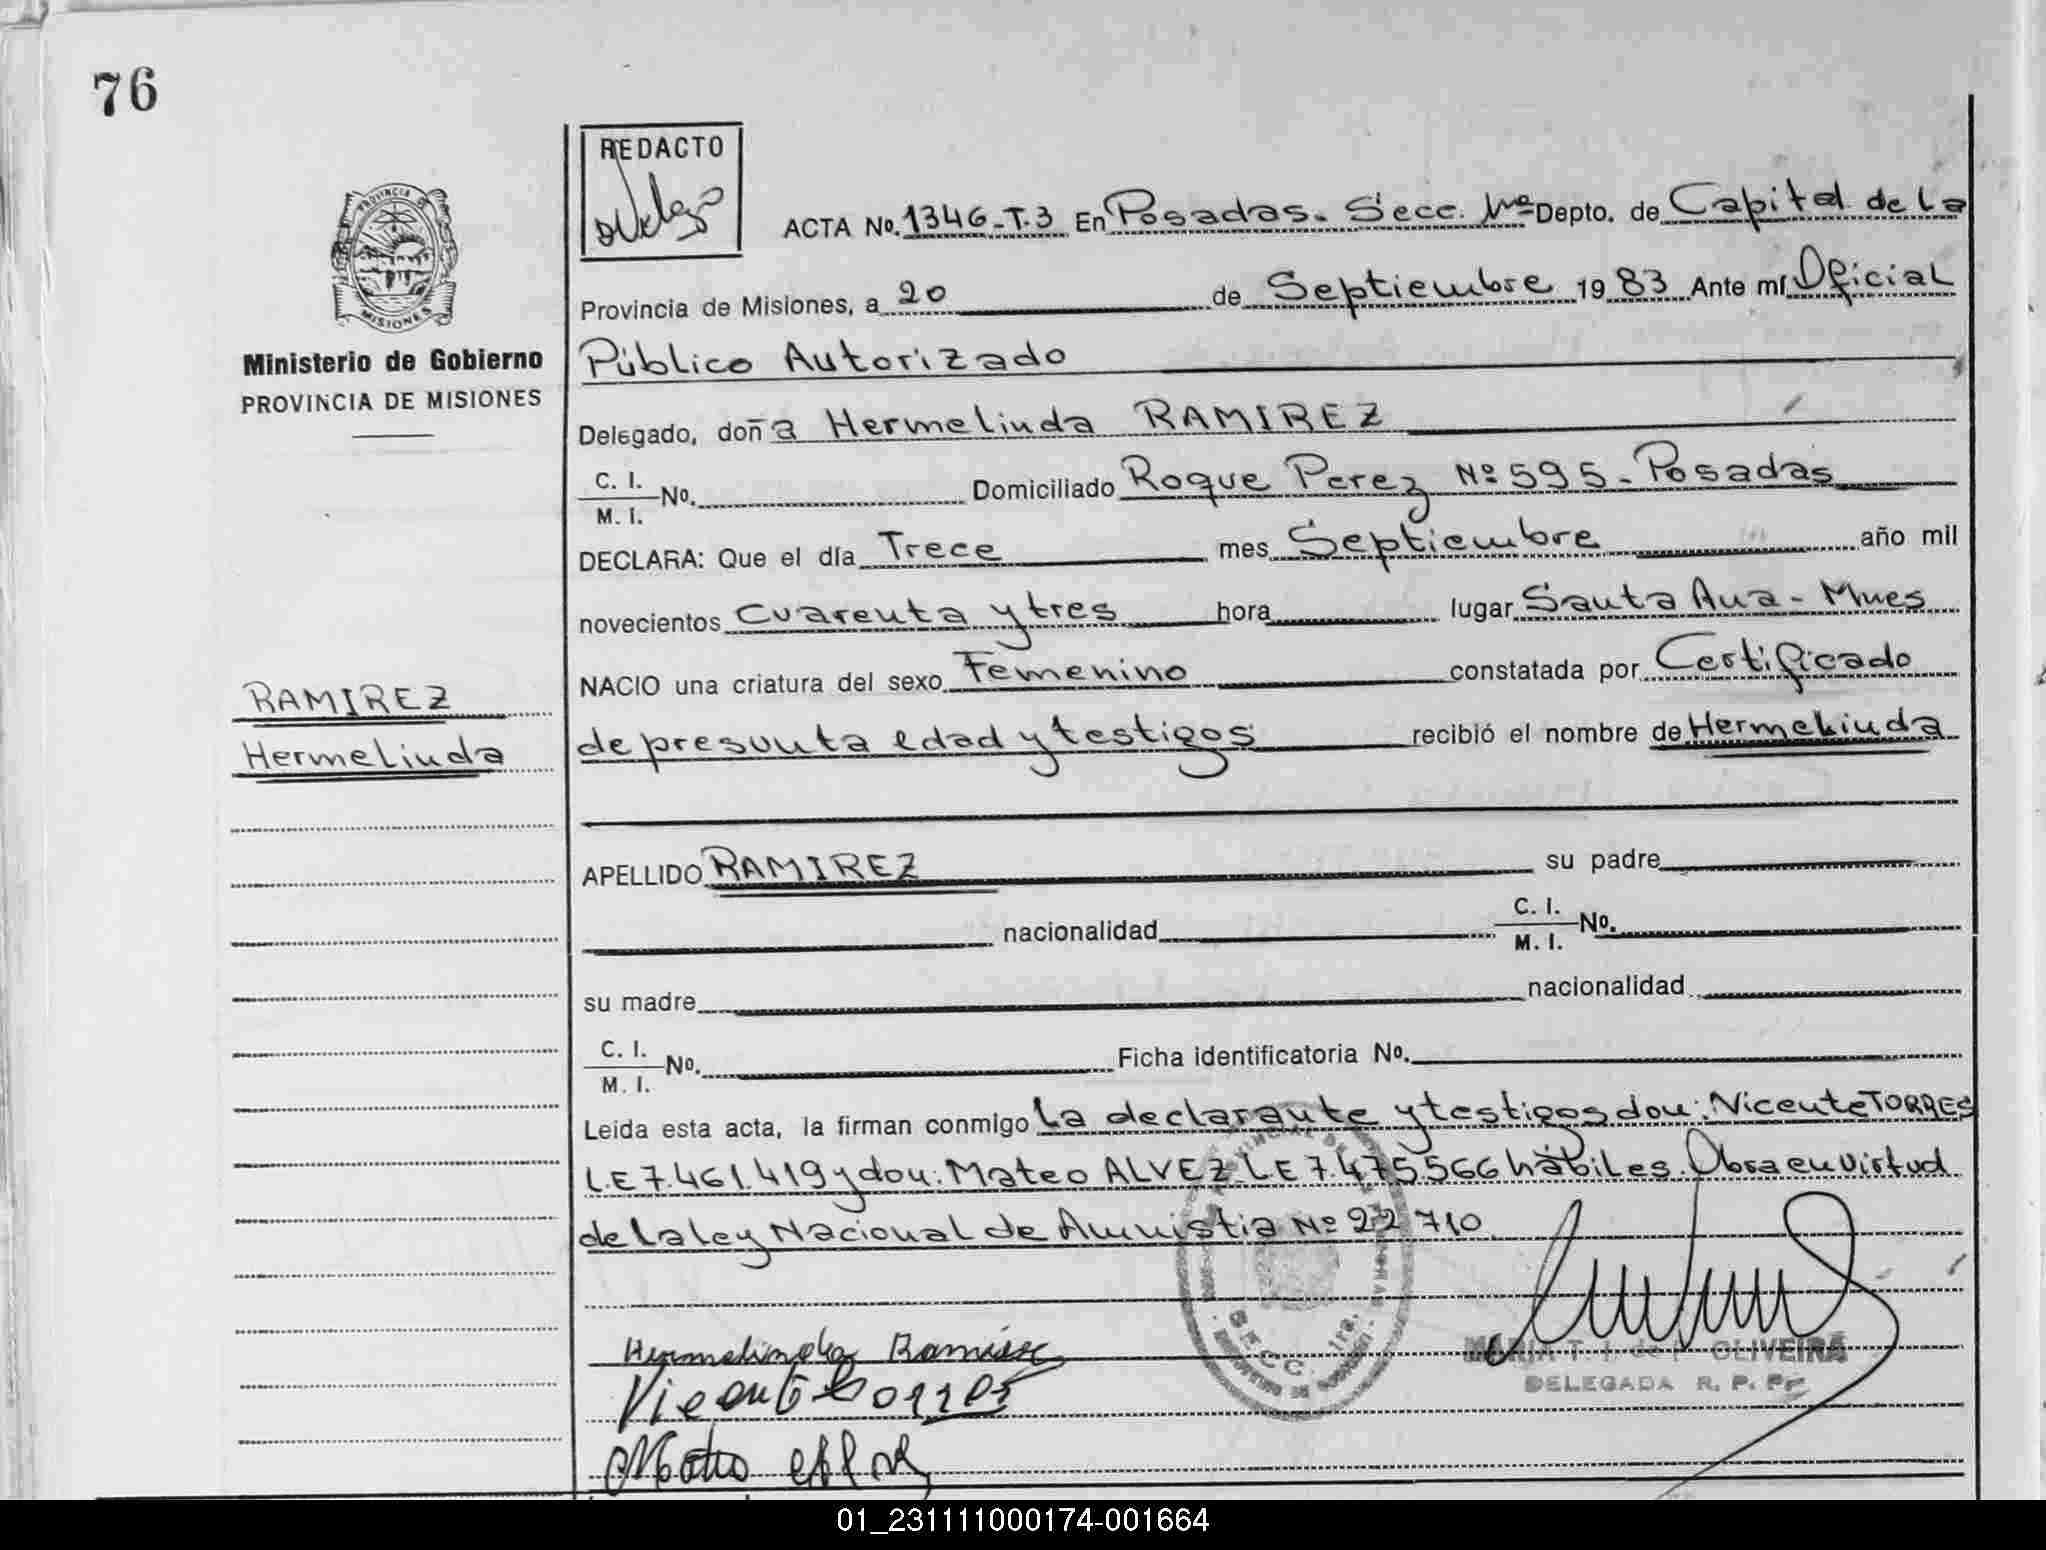 76
REDACTO
PROVINCIA DE
MISIONES
Ministerio de Gobierno
PROVINCIA DE MISIONES
ACTA No. 1346-T.3 En Posadas. Secc. 1ra Depto. de Capital de la
Provincia de Misiones, a 20 de Septiembre 1983 Ante mí Oficial
Público Autorizado
Delegado, doña Hermelinda RAMIREZ
C. I. / M. I. No. Domiciliado Roque Perez Nº 595-Posadas
DECLARA: Que el día Trece mes Septiembre año mil
novecientos cuarenta y tres hora lugar Santa Ana - Mnes
NACIO una criatura del sexo Femenino constatada por Certificado
de presunta edad y testigos recibió el nombre de Hermelinda
RAMIREZ
Hermelinda
APELLIDO RAMIREZ su padre
nacionalidad C. I. / M. I. No.
su madre nacionalidad
C. I. / M. I. No. Ficha identificatoria No.
Leida esta acta, la firman conmigo la declarante y testigos don: Vicente TORRES
L.E 7.461.419 y don: Mateo ALVEZ L E 7.475.566 hábiles. Obra en virtud
de la ley Nacional de Amnistia Nº 22 710
SECC. 1ra.
Hermelinda Ramirez
Vicente Torres
Mateo
MARIA T. OLIVEIRA
DELEGADA R. P. PP
01_231111000174-001664